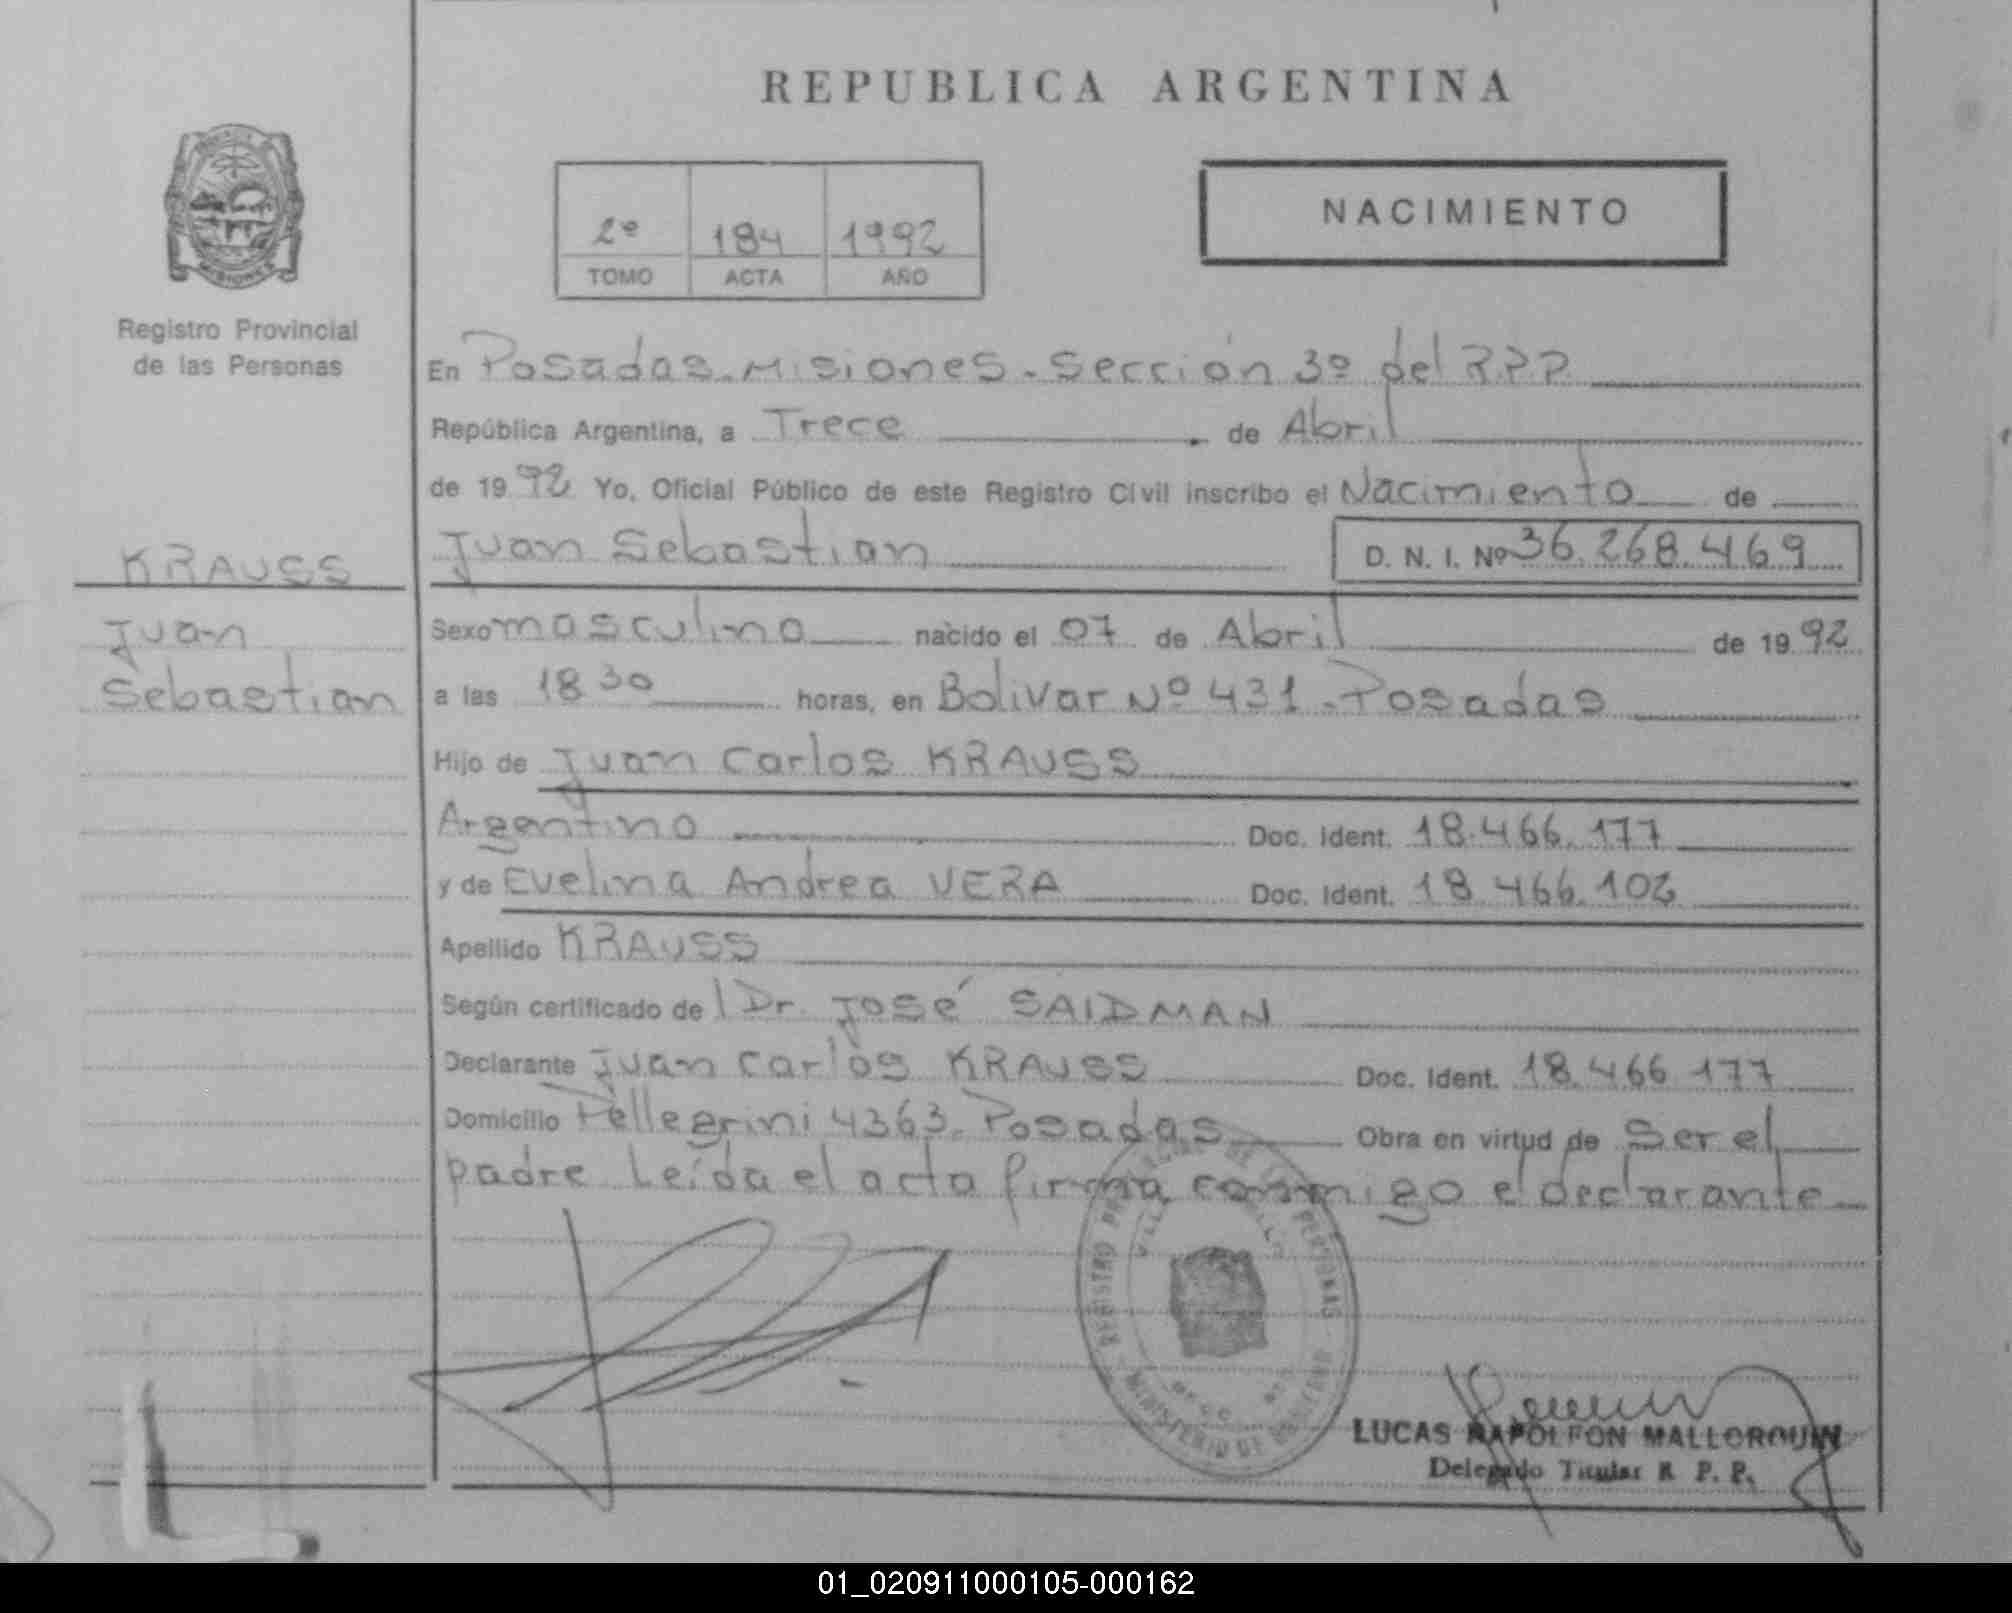 REPUBLICA ARGENTINA
MISIONES
Registro Provincial
de las Personas
2º 184 1992
TOMO ACTA AÑO
NACIMIENTO
En Posadas - Misiones - Sección 3º del R.P.P.
República Argentina, a Trece de Abril
de 1992 Yo, Oficial Público de este Registro Civil inscribo el Nacimiento de
Juan Sebastian D. N. I. Nº 36.268.469
KRAUSS
Juan
Sebastian
Sexo masculino nacido el 07 de Abril de 1992
a las 18 30 horas, en Bolivar Nº 431 - Posadas
Hijo de Juan Carlos KRAUSS
Argentino Doc. Ident. 18.466.177
y de Evelina Andrea VERA Doc. Ident. 18.466.102
Apellido KRAUSS
Según certificado de Dr. José SAIDMAN
Declarante Juan Carlos KRAUSS Doc. Ident. 18.466.177
Domicilio Pellegrini 4363 - Posadas Obra en virtud de Ser el
padre Leída el acta firma conmigo el declarante
REGISTRO PROVINCIAL DE LAS PERSONAS
MINISTERIO DE GOBIERNO
LUCAS NAPOLEON MALLORQUIN
Delegado Titular R. P. P.
01_020911000105-000162